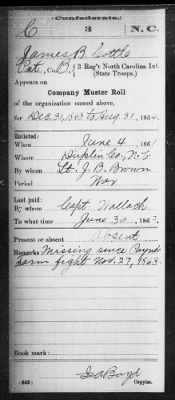 Confederate.
C 3 N.C.
James B Cottle
Pvt, Co. B, 3 Reg't North Carolina Inf.
(State Troops.)
Appears on
Company Muster Roll
of the organization named above,
for Dec. 31, 1863 to Aug. 31, 1864
Enlisted:
When June 4, 186
Where Duplin Co, N.C
By whom Lt. J. B. Brown
Period War
Last paid:
By whom Capt. Wallach
To what time June 30, 186
Present or absent Absent
Remarks: Missing since Payne
farm fight Nov. 27, 1863.
Book mark:
(642) Copyist.